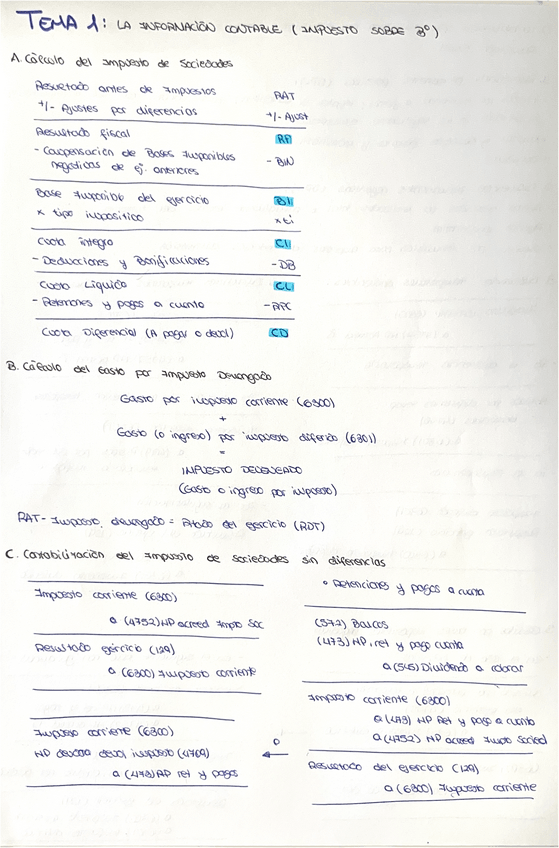 TEMA 1: LA INFORMACIÓN CONTABLE (IMPUESTO SOBRE Bº)
A. Cálculo del Impuesto de Sociedades
Resultado antes de Impuestos RAT
+/- Ajustes por diferencias +/- Ajust
Resultado fiscal RF
- Compensación de Bases Imponibles - BIN
negativas de ej. anteriores
Base Imponible del ejercicio BI
x tipo impositivo x ti
Cuota íntegra CI
- Deducciones y Bonificaciones - DB
Cuota Líquida CL
- Retenciones y pagos a cuenta - RPC
Cuota Diferencial (A pagar o devol) CD
B. Cálculo del Gasto por Impuesto Devengado
Gasto por impuesto corriente (6300)
+
Gasto (o ingreso) por impuesto diferido (6301)
=
IMPUESTO DEVENGADO
(Gasto o ingreso por impuesto)
RAT - Impuesto devengado = Rtado del ejercicio (RDT)
C. Contabilización del Impuesto de sociedades sin diferencias
Impuesto corriente (6300)
a (4752) HP acreed Impto Soc
Resultado ejercicio (129)
a (6300) Impuesto corriente
Impuesto corriente (6300)
HP deudora devol impuesto (4709)
a (473) HP ret y pagos
o
• Retenciones y pagos a cuenta
(572) Bancos
(473) HP, ret y pago cuenta
a (545) Dividendo a cobrar
Impuesto corriente (6300)
a (473) HP Ret y pago a cuenta
a (4752) HP acreed Impto Socied
Resultado del ejercicio (129)
a (6300) Impuesto corriente